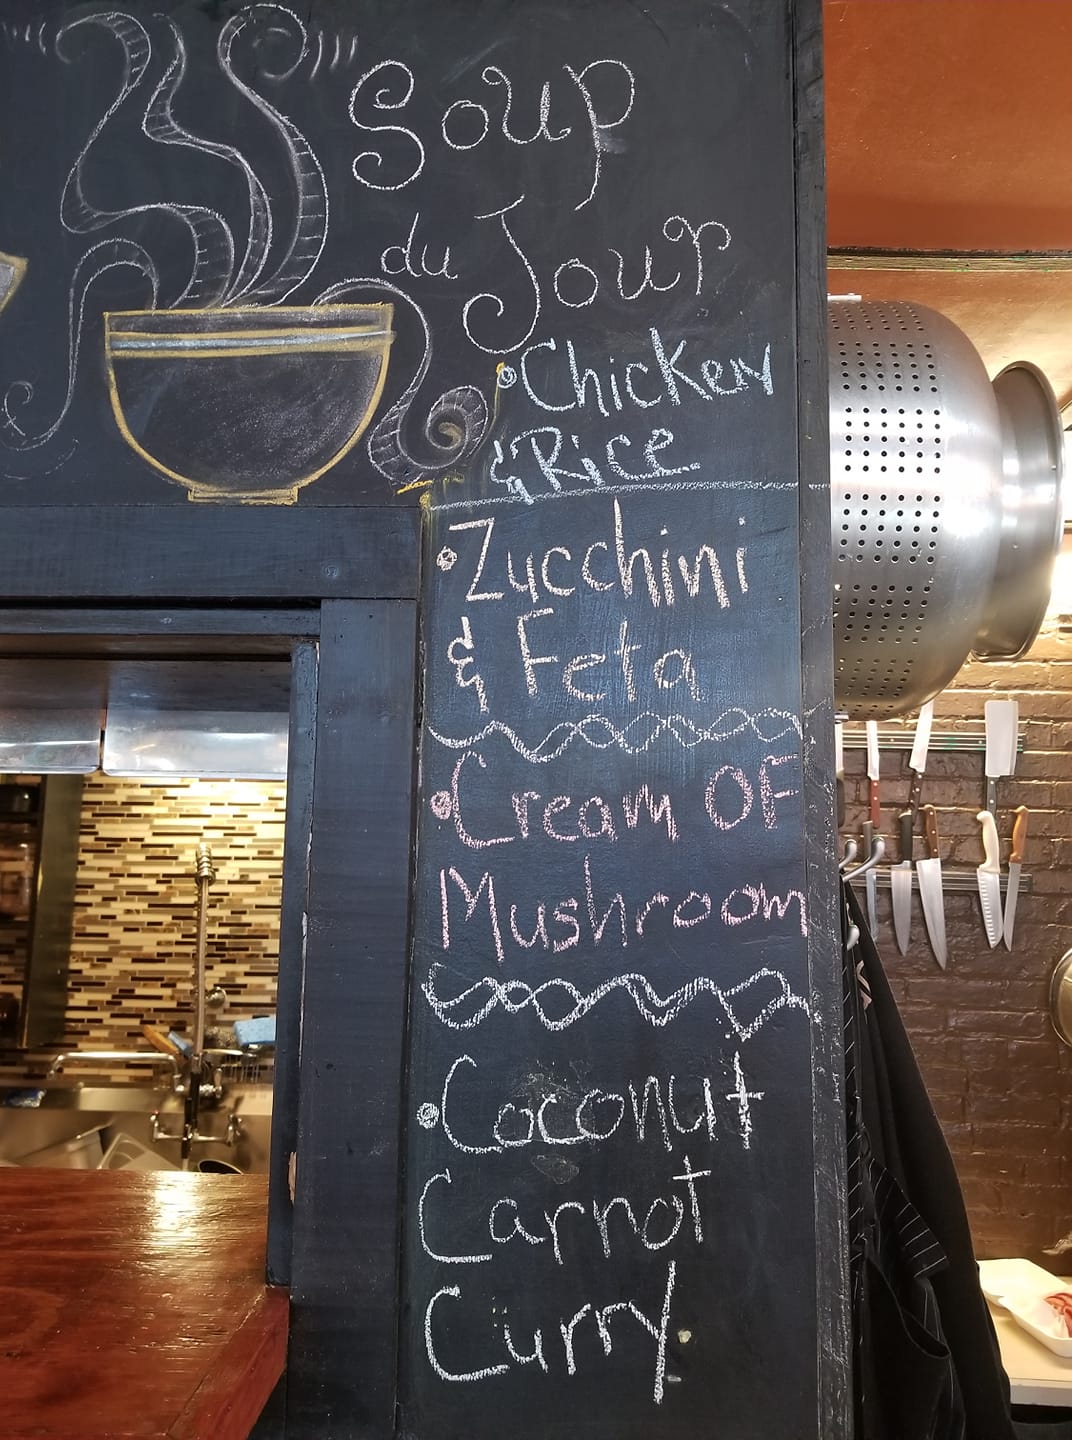 Soup
du Jour
• Chicken
& Rice
• Zucchini
& Feta
• Cream OF
Mushroom
• Coconut
Carrot
Curry